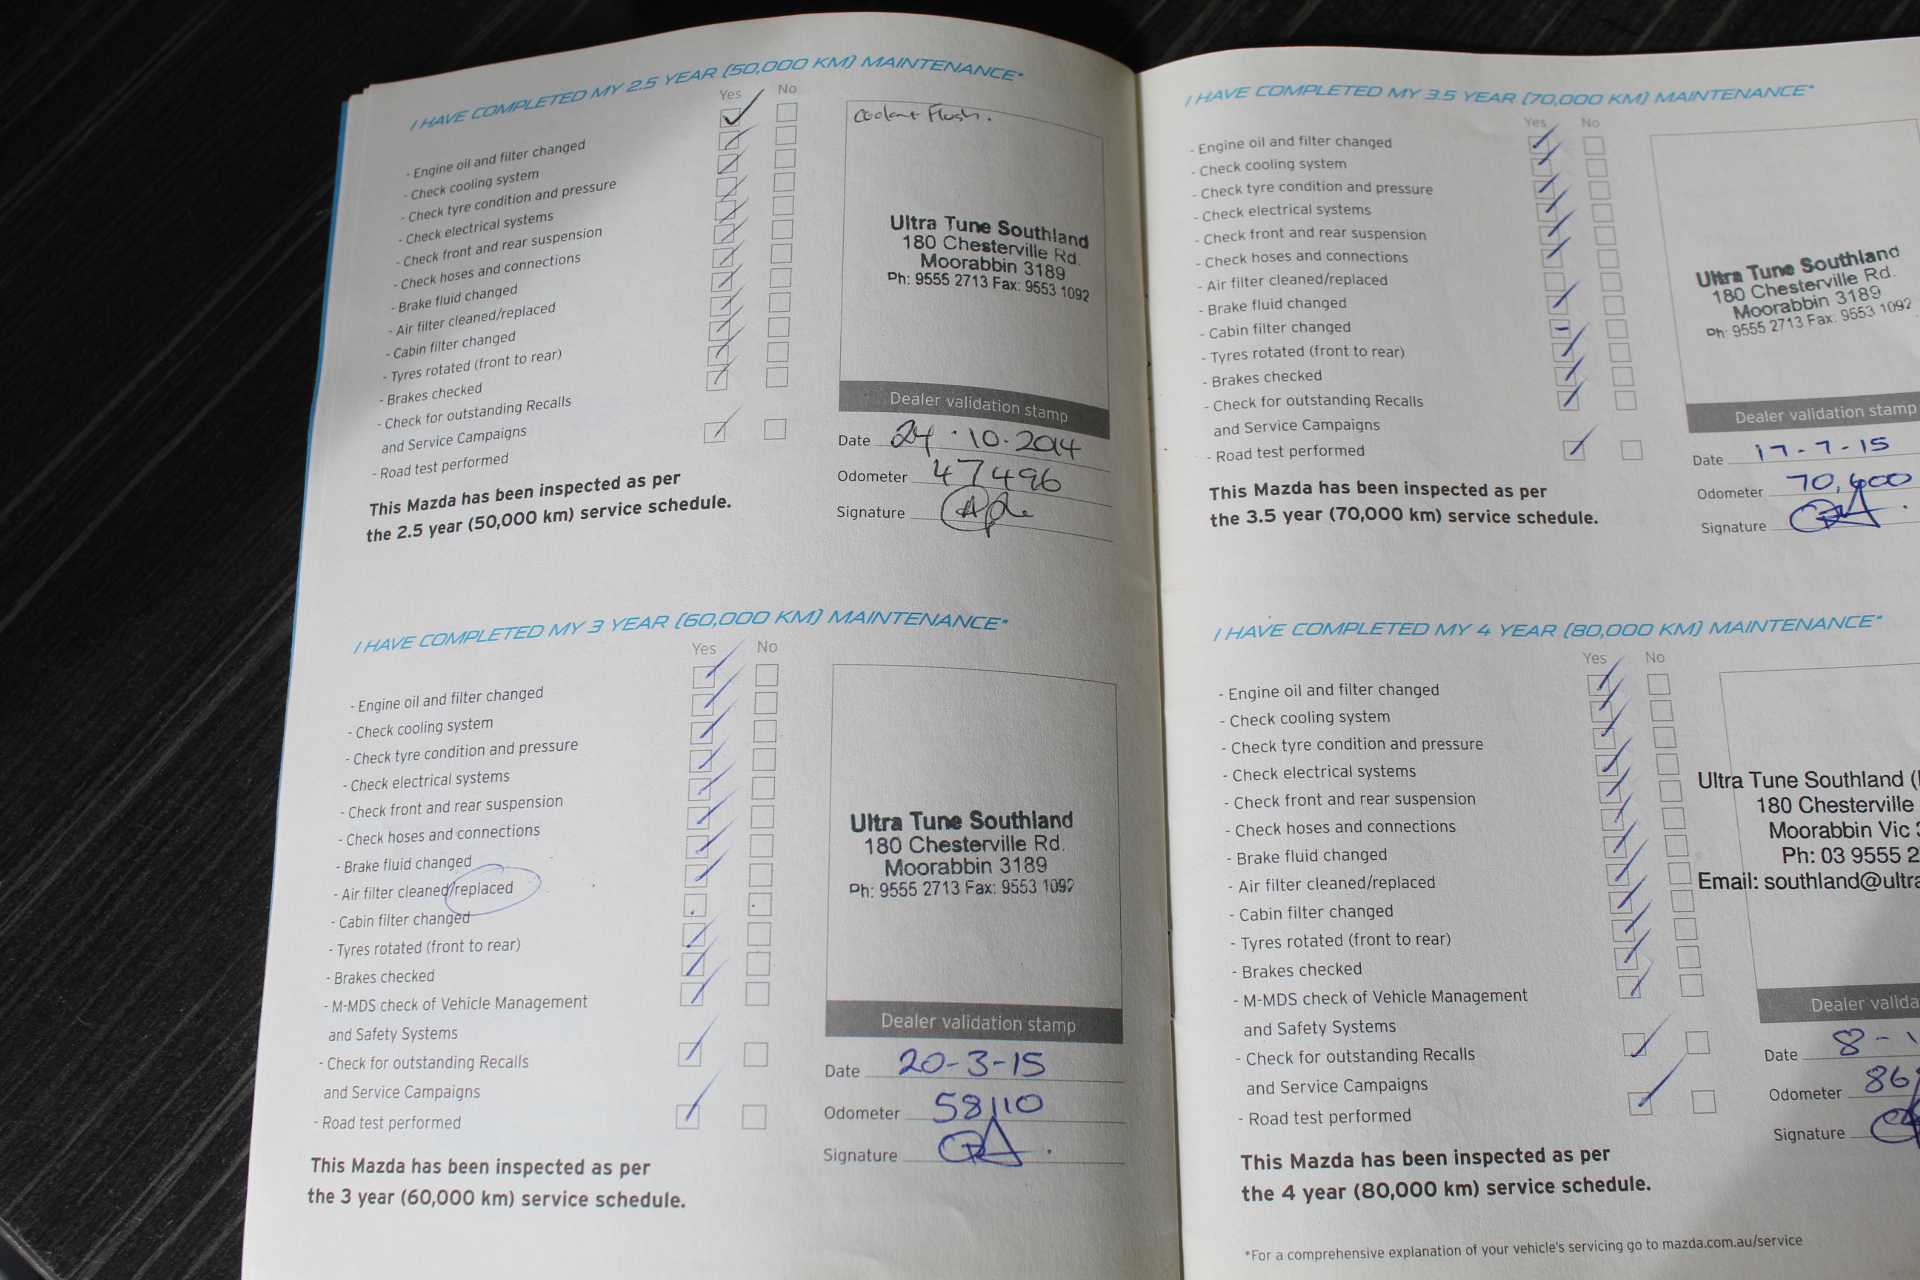 I HAVE COMPLETED MY 2.5 YEAR (50,000 KM) MAINTENANCE*
Yes No
- Engine oil and filter changed
- Check cooling system
- Check tyre condition and pressure
- Check electrical systems
- Check front and rear suspension
- Check hoses and connections
- Brake fluid changed
- Air filter cleaned/replaced
- Cabin filter changed
- Tyres rotated (front to rear)
- Brakes checked
- Check for outstanding Recalls
and Service Campaigns
- Road test performed
This Mazda has been inspected as per
the 2.5 year (50,000 km) service schedule.
Coolant Flush.
Ultra Tune Southland
180 Chesterville Rd.
Moorabbin 3189
Ph: 9555 2713 Fax: 9553 1092
Dealer validation stamp
Date 24.10.2014
Odometer 47496
Signature
I HAVE COMPLETED MY 3 YEAR (60,000 KM) MAINTENANCE*
Yes No
- Engine oil and filter changed
- Check cooling system
- Check tyre condition and pressure
- Check electrical systems
- Check front and rear suspension
- Check hoses and connections
- Brake fluid changed
- Air filter cleaned/replaced
- Cabin filter changed
- Tyres rotated (front to rear)
- Brakes checked
- M-MDS check of Vehicle Management
and Safety Systems
- Check for outstanding Recalls
and Service Campaigns
- Road test performed
This Mazda has been inspected as per
the 3 year (60,000 km) service schedule.
Ultra Tune Southland
180 Chesterville Rd.
Moorabbin 3189
Ph: 9555 2713 Fax: 9553 1092
Dealer validation stamp
Date 20-3-15
Odometer 58110
Signature
I HAVE COMPLETED MY 3.5 YEAR (70,000 KM) MAINTENANCE*
Yes No
- Engine oil and filter changed
- Check cooling system
- Check tyre condition and pressure
- Check electrical systems
- Check front and rear suspension
- Check hoses and connections
- Air filter cleaned/replaced
- Brake fluid changed
- Cabin filter changed
- Tyres rotated (front to rear)
- Brakes checked
- Check for outstanding Recalls
and Service Campaigns
- Road test performed
This Mazda has been inspected as per
the 3.5 year (70,000 km) service schedule.
Ultra Tune Southland
180 Chesterville Rd.
Moorabbin 3189
Ph: 9555 2713 Fax: 9553 1092
Dealer validation stamp
Date 17-7-15
Odometer 70,600
Signature
I HAVE COMPLETED MY 4 YEAR (80,000 KM) MAINTENANCE*
Yes No
- Engine oil and filter changed
- Check cooling system
- Check tyre condition and pressure
- Check electrical systems
- Check front and rear suspension
- Check hoses and connections
- Brake fluid changed
- Air filter cleaned/replaced
- Cabin filter changed
- Tyres rotated (front to rear)
- Brakes checked
- M-MDS check of Vehicle Management
and Safety Systems
- Check for outstanding Recalls
and Service Campaigns
- Road test performed
This Mazda has been inspected as per
the 4 year (80,000 km) service schedule.
Ultra Tune Southland (
180 Chesterville
Moorabbin Vic
Ph: 03 9555 2
Email: southland@ultra
Dealer valida
Date 8-1
Odometer 86
Signature
*For a comprehensive explanation of your vehicle's servicing go to mazda.com.au/service